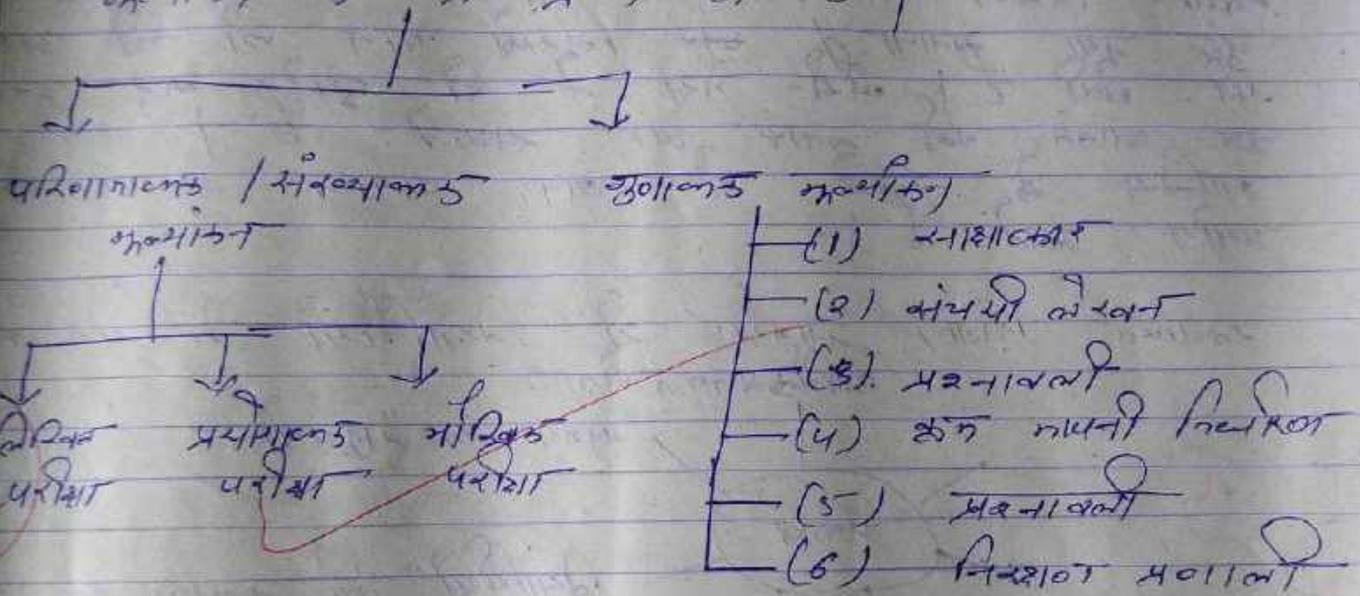 परिणामात्मक / संख्यात्मक
मूल्यांकन
लिखित परीक्षा
प्रयोगात्मक परीक्षा
मौखिक परीक्षा
गुणात्मक मूल्यांकन
(1) साक्षात्कार
(2) संचयी लेखन
(3) प्रश्नावली
(4) क्रम मापनी
(5) प्रश्नावली
(6) प्रणाली